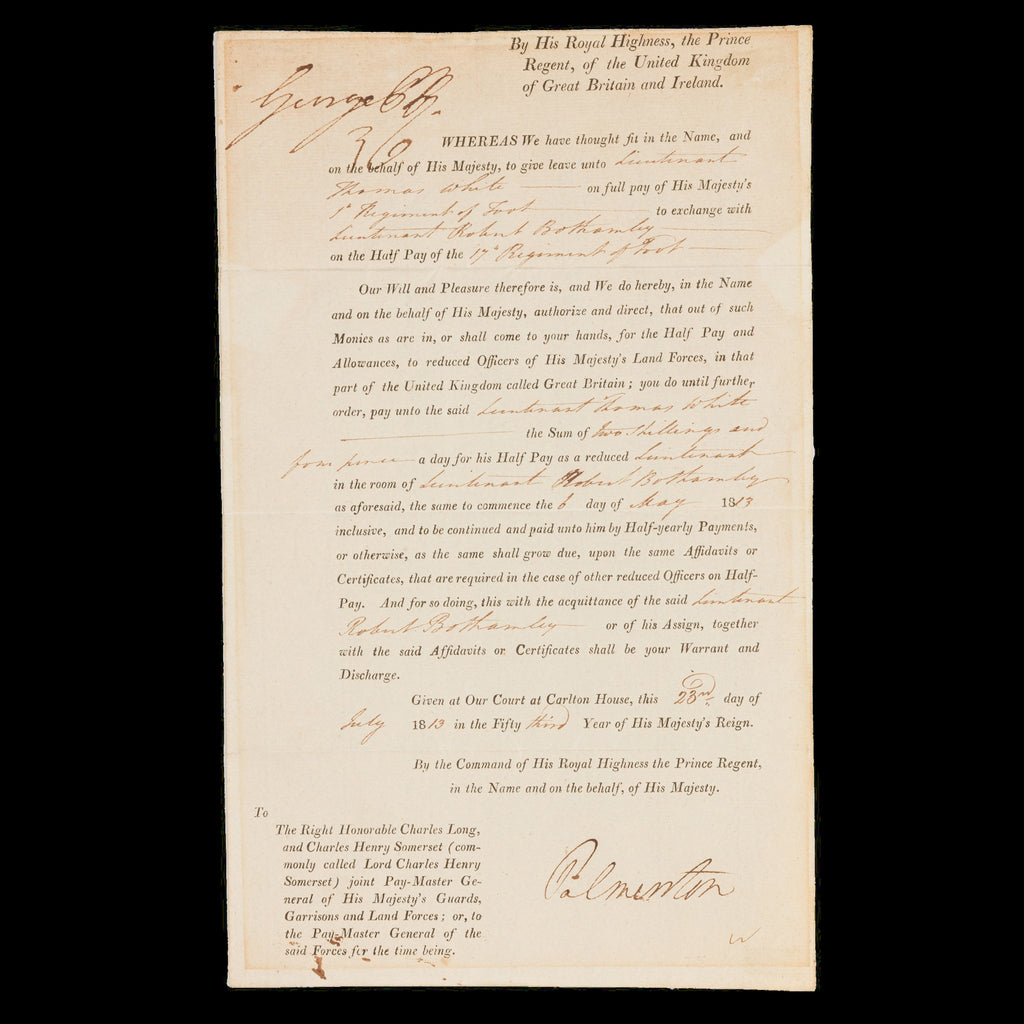 By His Royal Highness, the Prince
Regent, of the United Kingdom
of Great Britain and Ireland.
George P R.
36
WHEREAS We have thought fit in the Name, and
on the behalf of His Majesty, to give leave unto Lieutenant
Thomas White on full pay of His Majesty's
1st Regiment of Foot to exchange with
Lieutenant Robert Bothamley
on the Half Pay of the 17th Regiment of Foot
Our Will and Pleasure therefore is, and We do hereby, in the Name
and on the behalf of His Majesty, authorize and direct, that out of such
Monies as are in, or shall come to your hands, for the Half Pay and
Allowances, to reduced Officers of His Majesty's Land Forces, in that
part of the United Kingdom called Great Britain; you do until further
order, pay unto the said Lieutenant Thomas White
the Sum of two Shillings and
four pence a day for his Half Pay as a reduced Lieutenant
in the room of Lieutenant Robert Bothamley
as aforesaid, the same to commence the 6 day of May 1813
inclusive, and to be continued and paid unto him by Half-yearly Payments,
or otherwise, as the same shall grow due, upon the same Affidavits or
Certificates, that are required in the case of other reduced Officers on Half-
Pay. And for so doing, this with the acquittance of the said Lieutenant
Robert Bothamley or of his Assign, together
with the said Affidavits or Certificates shall be your Warrant and
Discharge.
Given at Our Court at Carlton House, this 23rd day of
July 1813 in the Fifty third Year of His Majesty's Reign.
By the Command of His Royal Highness the Prince Regent,
in the Name and on the behalf, of His Majesty.
To
The Right Honorable Charles Long,
and Charles Henry Somerset (com-
monly called Lord Charles Henry
Somerset) joint Pay-Master Ge-
neral of His Majesty's Guards,
Garrisons and Land Forces; or, to
the Pay-Master General of the
said Forces for the time being.
Palmerston